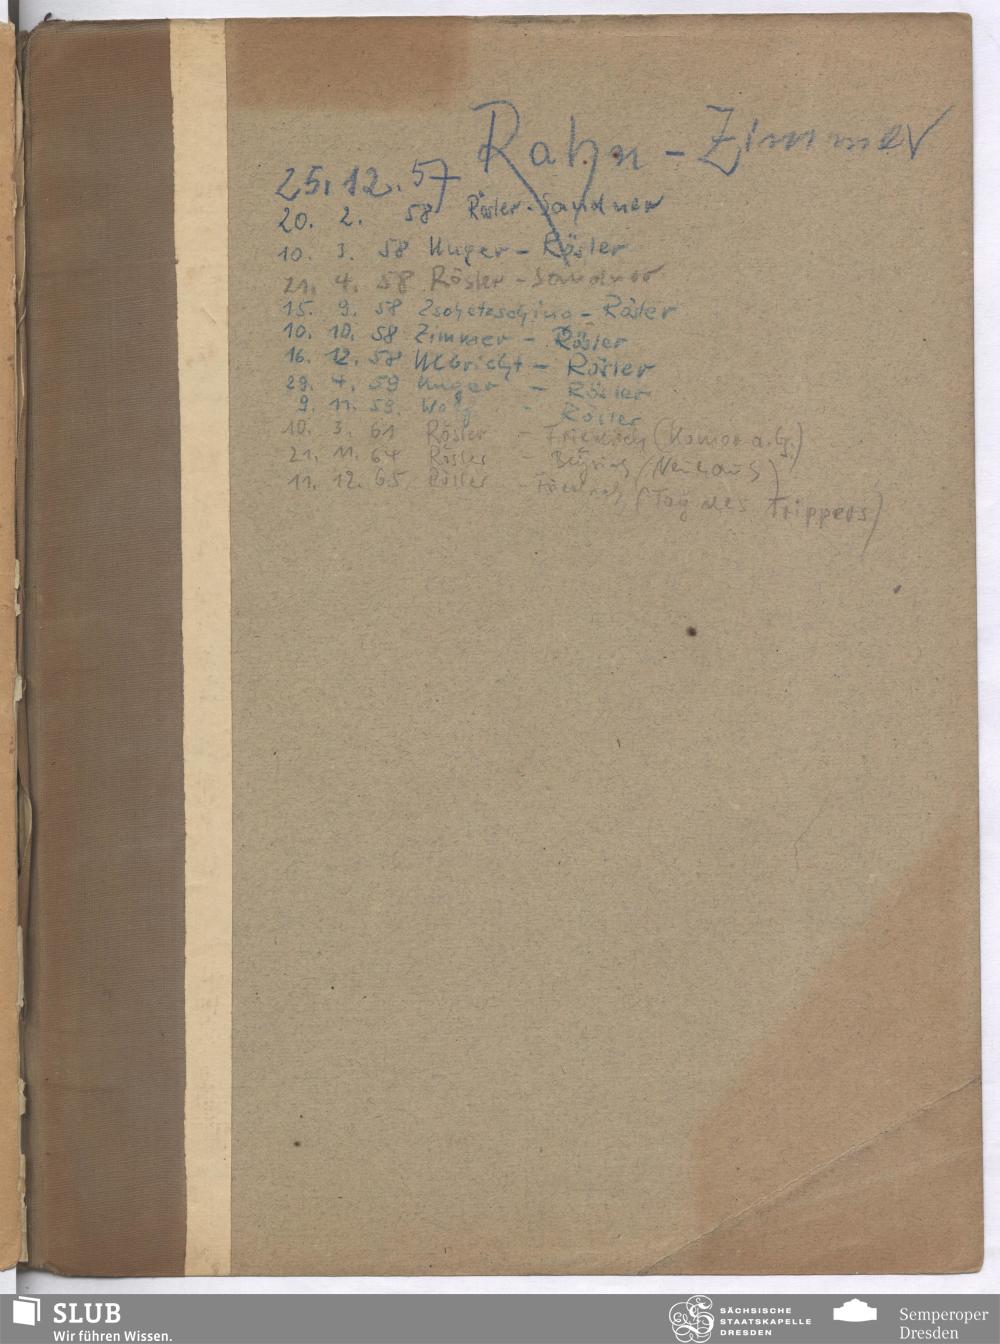 25.12.57 Rahn - Zimmer
20. 2. 58 Rösler - Sandner
10. 3. 58 Unger - Rösler
21. 4. 58 Rösler - Sandner
15. 9. 58 - Rösler
10. 10. 58 Zimmer - Rösler
16. 12. 58 Ulbricht - Rösler
29. 4. 59 Unger - Rösler
9. 11. 59. Wolf - Rösler
10. 3. 61 Rösler - Friedrich
21. 11. 64 Rösler - (Neuhaus)
11. 12. 65. Rösler - Friedrich (Tag des Trippers)
SLUB
Wir führen Wissen.
SÄCHSISCHE
STAATSKAPELLE
DRESDEN
Semperoper
Dresden